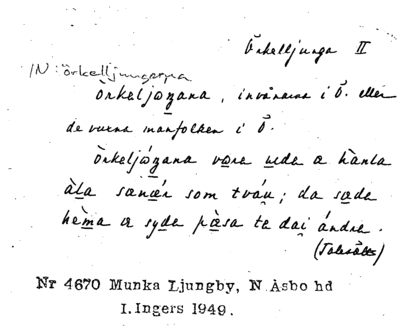 Örkelljunga II
IN: örkelljungarna
Òrkeljọŋana, invånarna i Ö. eller
de vuxna manfolken i Ö.
Òrkeljọ́ŋana vạra ụda a hànla
àlạ sænǽr som tváu; da sạda
hèmạ a sydạ pæ̀sa te dai ándra.
(Talesätt)
Nr 4670 Munka Ljungby, N Åsbo hd
I. Ingers 1949.